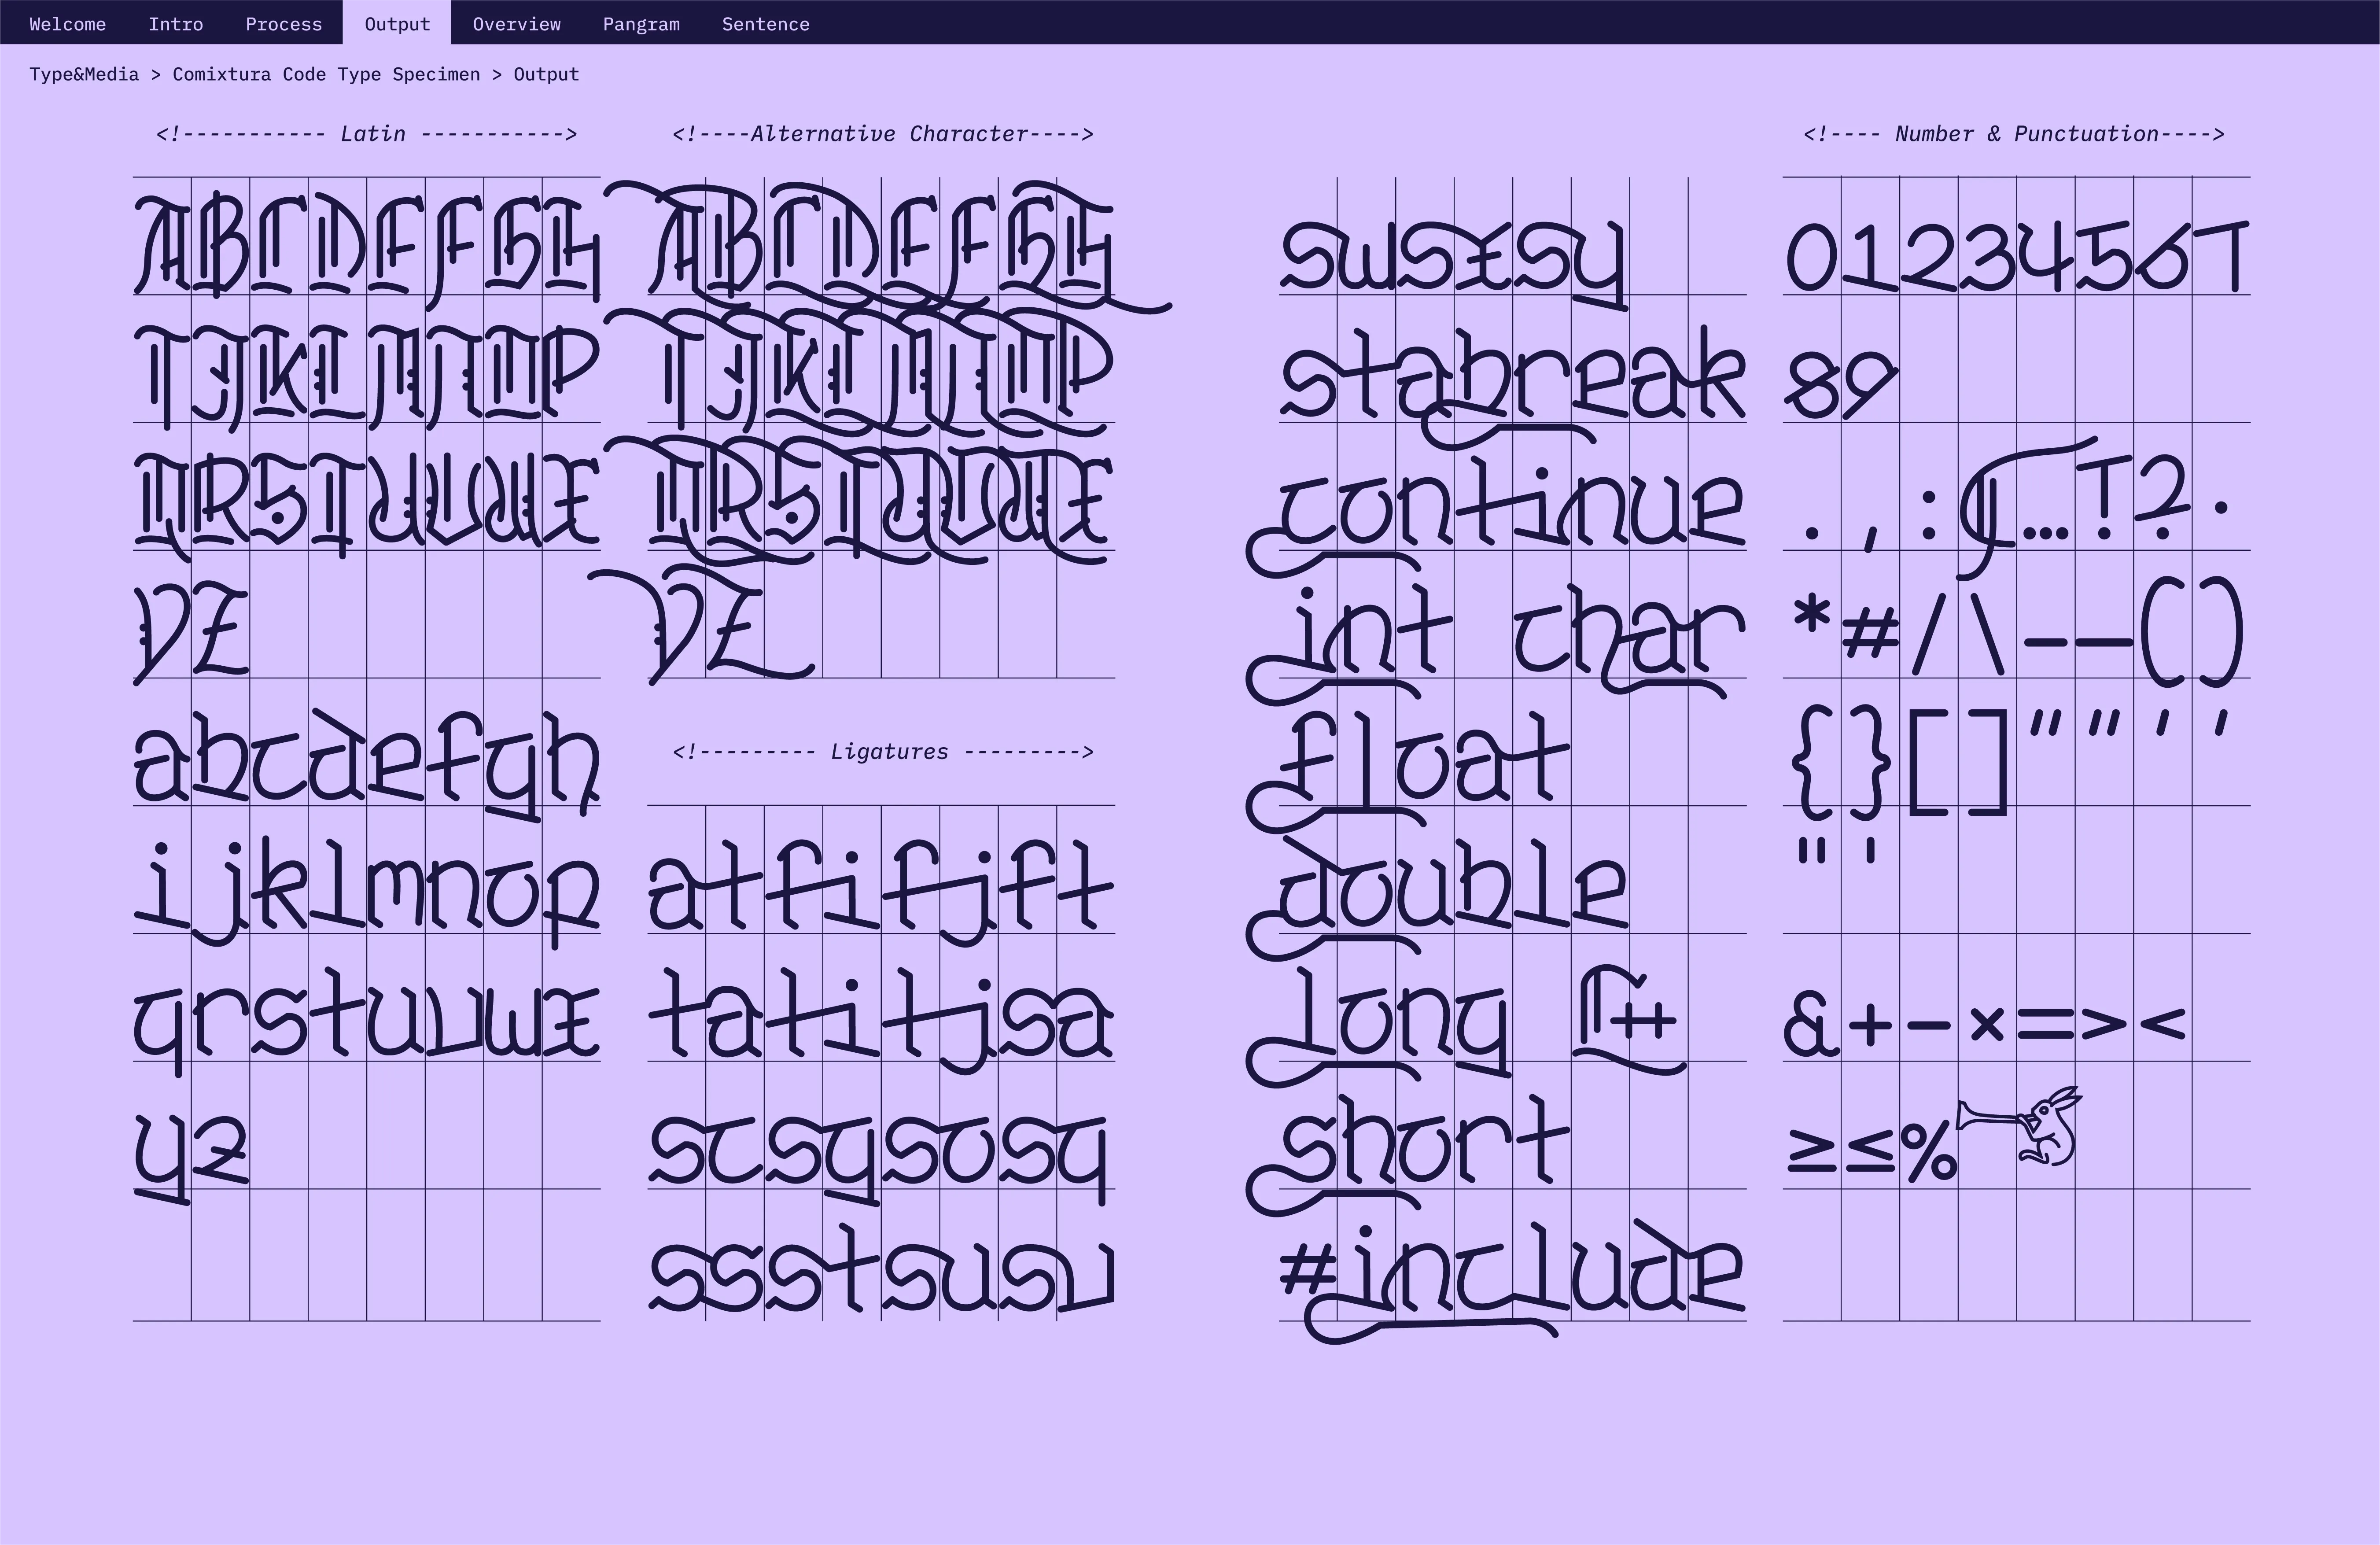 Welcome Intro Process Output Overview Pangram Sentence
Type&Media > Comixtura Code Type Specimen > Output
<!----------- Latin ----------->
ABCDEFGH
IJKLMNOP
QRSTUVWX
YZ
abcdefgh
ijklmnop
qrstuvwx
yz
<!----Alternative Character---->
ABCDEFGH
IJKLMNOP
QRSTUVWX
YZ
<!--------- Ligatures --------->
atfifjft
tatitjsa
scsgsosq
ssstsusv
swsxsy
stabreak
continue
int char
float
double
long C++
short
#include
<!---- Number & Punctuation---->
01234567
89
. , : ¶ … ! ? ·
* # / \ – — ( )
{ } [ ] “ ” ‘ ’
" '
& + − × = > <
≥ ≤ %